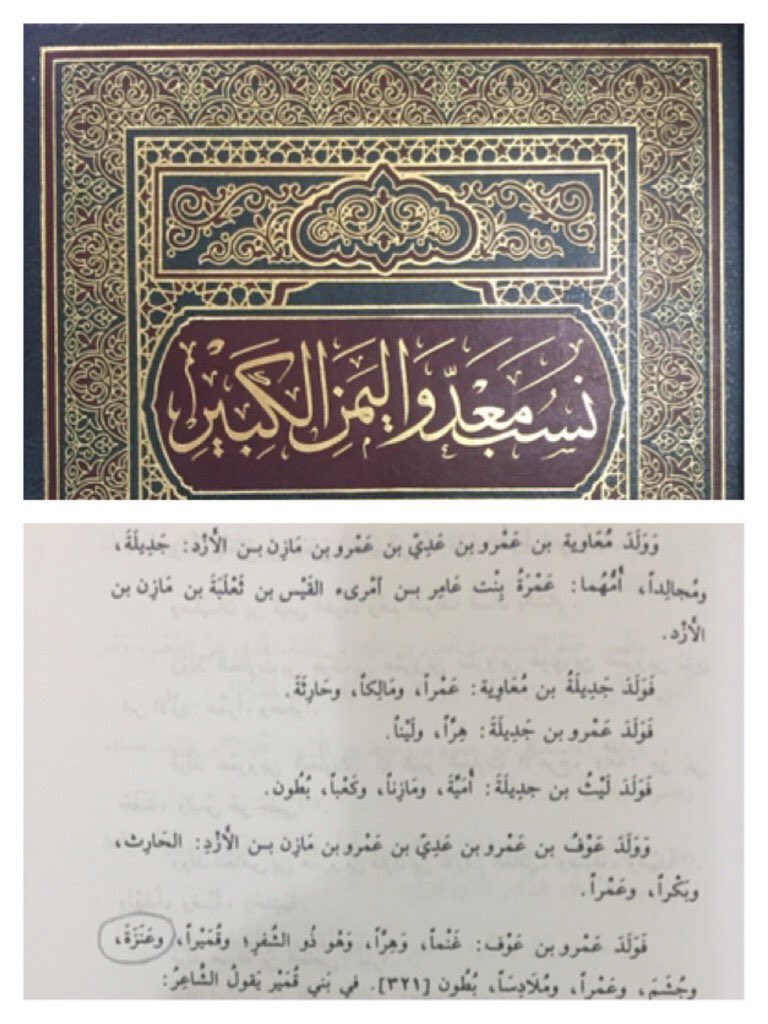 نَسَبُ مَعَدّ وَاليَمَن الكَبِيْر
وَوَلَدَ مُعَاوية بن عَمْرو بن عَدِيّ بن عَمْرو بن مَازِن بـن الأَزْد: جَدِيلَةَ،
ومُجالِداً، أُمُّهُما: عَمْرَةُ بِنْت عَامِر بـن آمْرىء القَيْس بن ثَعْلَبَةَ بن مَازِن بن
الأَزْد.
فَوَلَدَ جَدِيلَةُ بن مُعَاوِية: عَمْراً، ومَالِكاً، وحَارِثَةَ.
فَوَلَدَ عَمْرو بن جَدِيلَةَ: هِرّاً، ولَيْثاً.
فَوَلَدَ لَيْثُ بن جديلَةَ: أُمَيَّةَ، ومَازِناً، وكَعْباً، بُطُون.
وَوَلَدَ عَوْفُ بن عَمْرو بن عَدِيّ بن عَمْرو بن مَازِن بـن الأَزْدِ: الحَارِث،
وبَكْراً، وعَمْراً.
فَوَلَدَ عَمْرو بن عَوْف: غَنْماً، وَهِرّاً، وَهْو ذُو الشُفرِ؛ وقُمَيْراً، وعَنَزَةَ،
وجُشَمَ، وعَمْراً، ومُلَادِسَاً، بُطُون [٣٢١]. في بَني قُمَيْر يَقولُ الشَّاعِرُ: